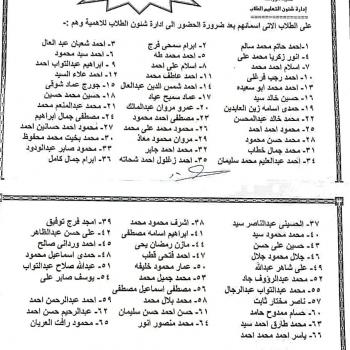 ادارة شئون التعليم الطلاب
على الطلاب الاتى اسمائهم بعد ضرورة الحضور الى ادارة شئون الطلاب للاهمية وهم :-
١- احمد حاتم محمد سالم ٢- ابرام سمحى فرج ٣- احمد شعبان عبد العال
٤- انور زكريا محمد على ٥- احمد محمد طه ٦- احمد سيد محمود
٧- اسلام احمد محمد ٨- اسلام على احمد ٩- ابراهيم عبدالتواب احمد
١٠- احمد رجب فرغلى ١١- احمد عاطف محمد ١٢- احمد علاء السيد
١٣- احمد محمد ابو سعيده ١٤- احمد شمس الدين عبدالعال ١٥- جورج عماد شوقى
١٦- حسين خالد سيد ١٧- عماد سميح عياد ١٨- حسين محمد حسين
١٩- حمدى اسامه زين العابدين ٢٠- عمرو مروان عبدالمالك ٢١- محمد عبدالمنعم محمد
٢٢- محمد خالد عبدالمحسن ٢٣- مصطفى احمد محمود ٢٤- مصطفى جمال ابراهيم
٢٥- محمود احمد احمد ٢٦- محمود على محمد ٢٧- محمود احمد حسانين احمد
٢٨- محمد حسن محمود ٢٩- مروان محمود معاذ ٣٠- محمد بخيت محمد محفوظ
٣١- محمد جمال خطاب ٣٢- محمد احمد جابر ٣٣- محمود صابر عبدالودود
٣٤- احمد عبدالعليم محمد سليمان ٣٥- احمد زغلول احمد شحاته ٣٦- ابرام جمال كامل
٣٧- الحسينى عبدالناصر سيد ٣٨- اشرف محمود محمد ٣٩- امجد فرج توفيق
٤٠- محمد محمود سيد ٤١- ابراهيم اسامه مصطفى ٤٢- على حسن عبدالظاهر
٤٣- حسين على حسن ٤٤- مازن رمضان يحى ٤٥- احمد وردانى صالح
٤٦- جلال محمود جلال ٤٧- احمد فتحى قطب ٤٨- حمدى اسماعيل محمود
٤٩- على شاهر عبدالله ٥٠- عمار محمود خليفه ٥١- عبدالله صلاح عبدالتواب
٥٢- محمد عبدالرؤوف جاد ٥٣- محمد جميل محمد ٥٤- يوسف صابر على
٥٥- محمد عبدالتواب عبدالرجال ٥٦- مصطفى اسماعيل مصطفى
٥٧- ناصر مختار ثابت ٥٨- محمد بلال محمد ٥٩- احمد عبدالرحمن احمد
٦٠- حسام ممدوح حامد ٦١- حسن احمد حسن سليمان ٦٢- عبدالرحيم حسن احمد
٦٣- محمد طارق احمد سيد ٦٤- محمد منصور انور ٦٥- محمود رافت العريان
٦٦- ياسر احمد محمد احمد